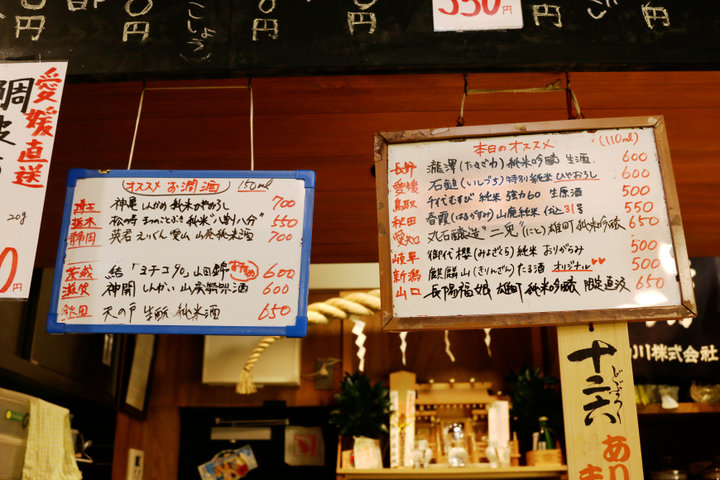 円
円
こしょう
円
円
550
円
円
円
愛媛直送
鯛
20g
オススメ お燗酒
150ml
埼玉 神亀 しんかめ 純米 700
栃木 松の寿 まつのことぶき 純米 550
静岡 英君 えいくん 愛山 山廃純米酒 700
茨城 結 山田錦 600
滋賀 神開 しんかい 山廃特別純米酒 600
秋田 天の戸 生酛 純米酒 650
本日のオススメ (110ml)
長野 瀧澤(たきざわ)純米吟醸 生酒 600
愛媛 石鎚(いしづち)特別純米 ひやおろし 600
鳥取 千代むすび 純米 強力60 生原酒 500
秋田 春霞(はるかすみ)山廃純米 31号 550
愛知 丸石醸造 "二兎"(にと)雄町 純米吟醸 650
岐阜 御代櫻(みよざくら)純米 おりがらみ 500
新潟 麒麟山(きりんざん)たる酒 オリジナル 500
山口 長陽福娘 雄町 純米吟醸 限定直汲 650
十六
どぶろく
あり
ま
川株式会社